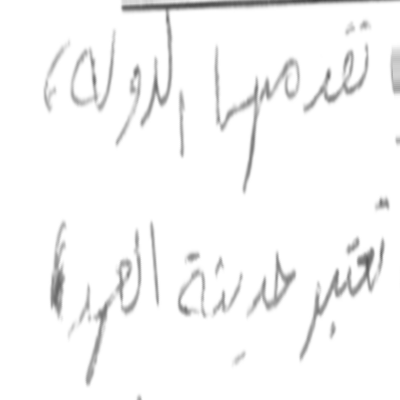 تقدمها الدولة،
تعتبر مدينة العر